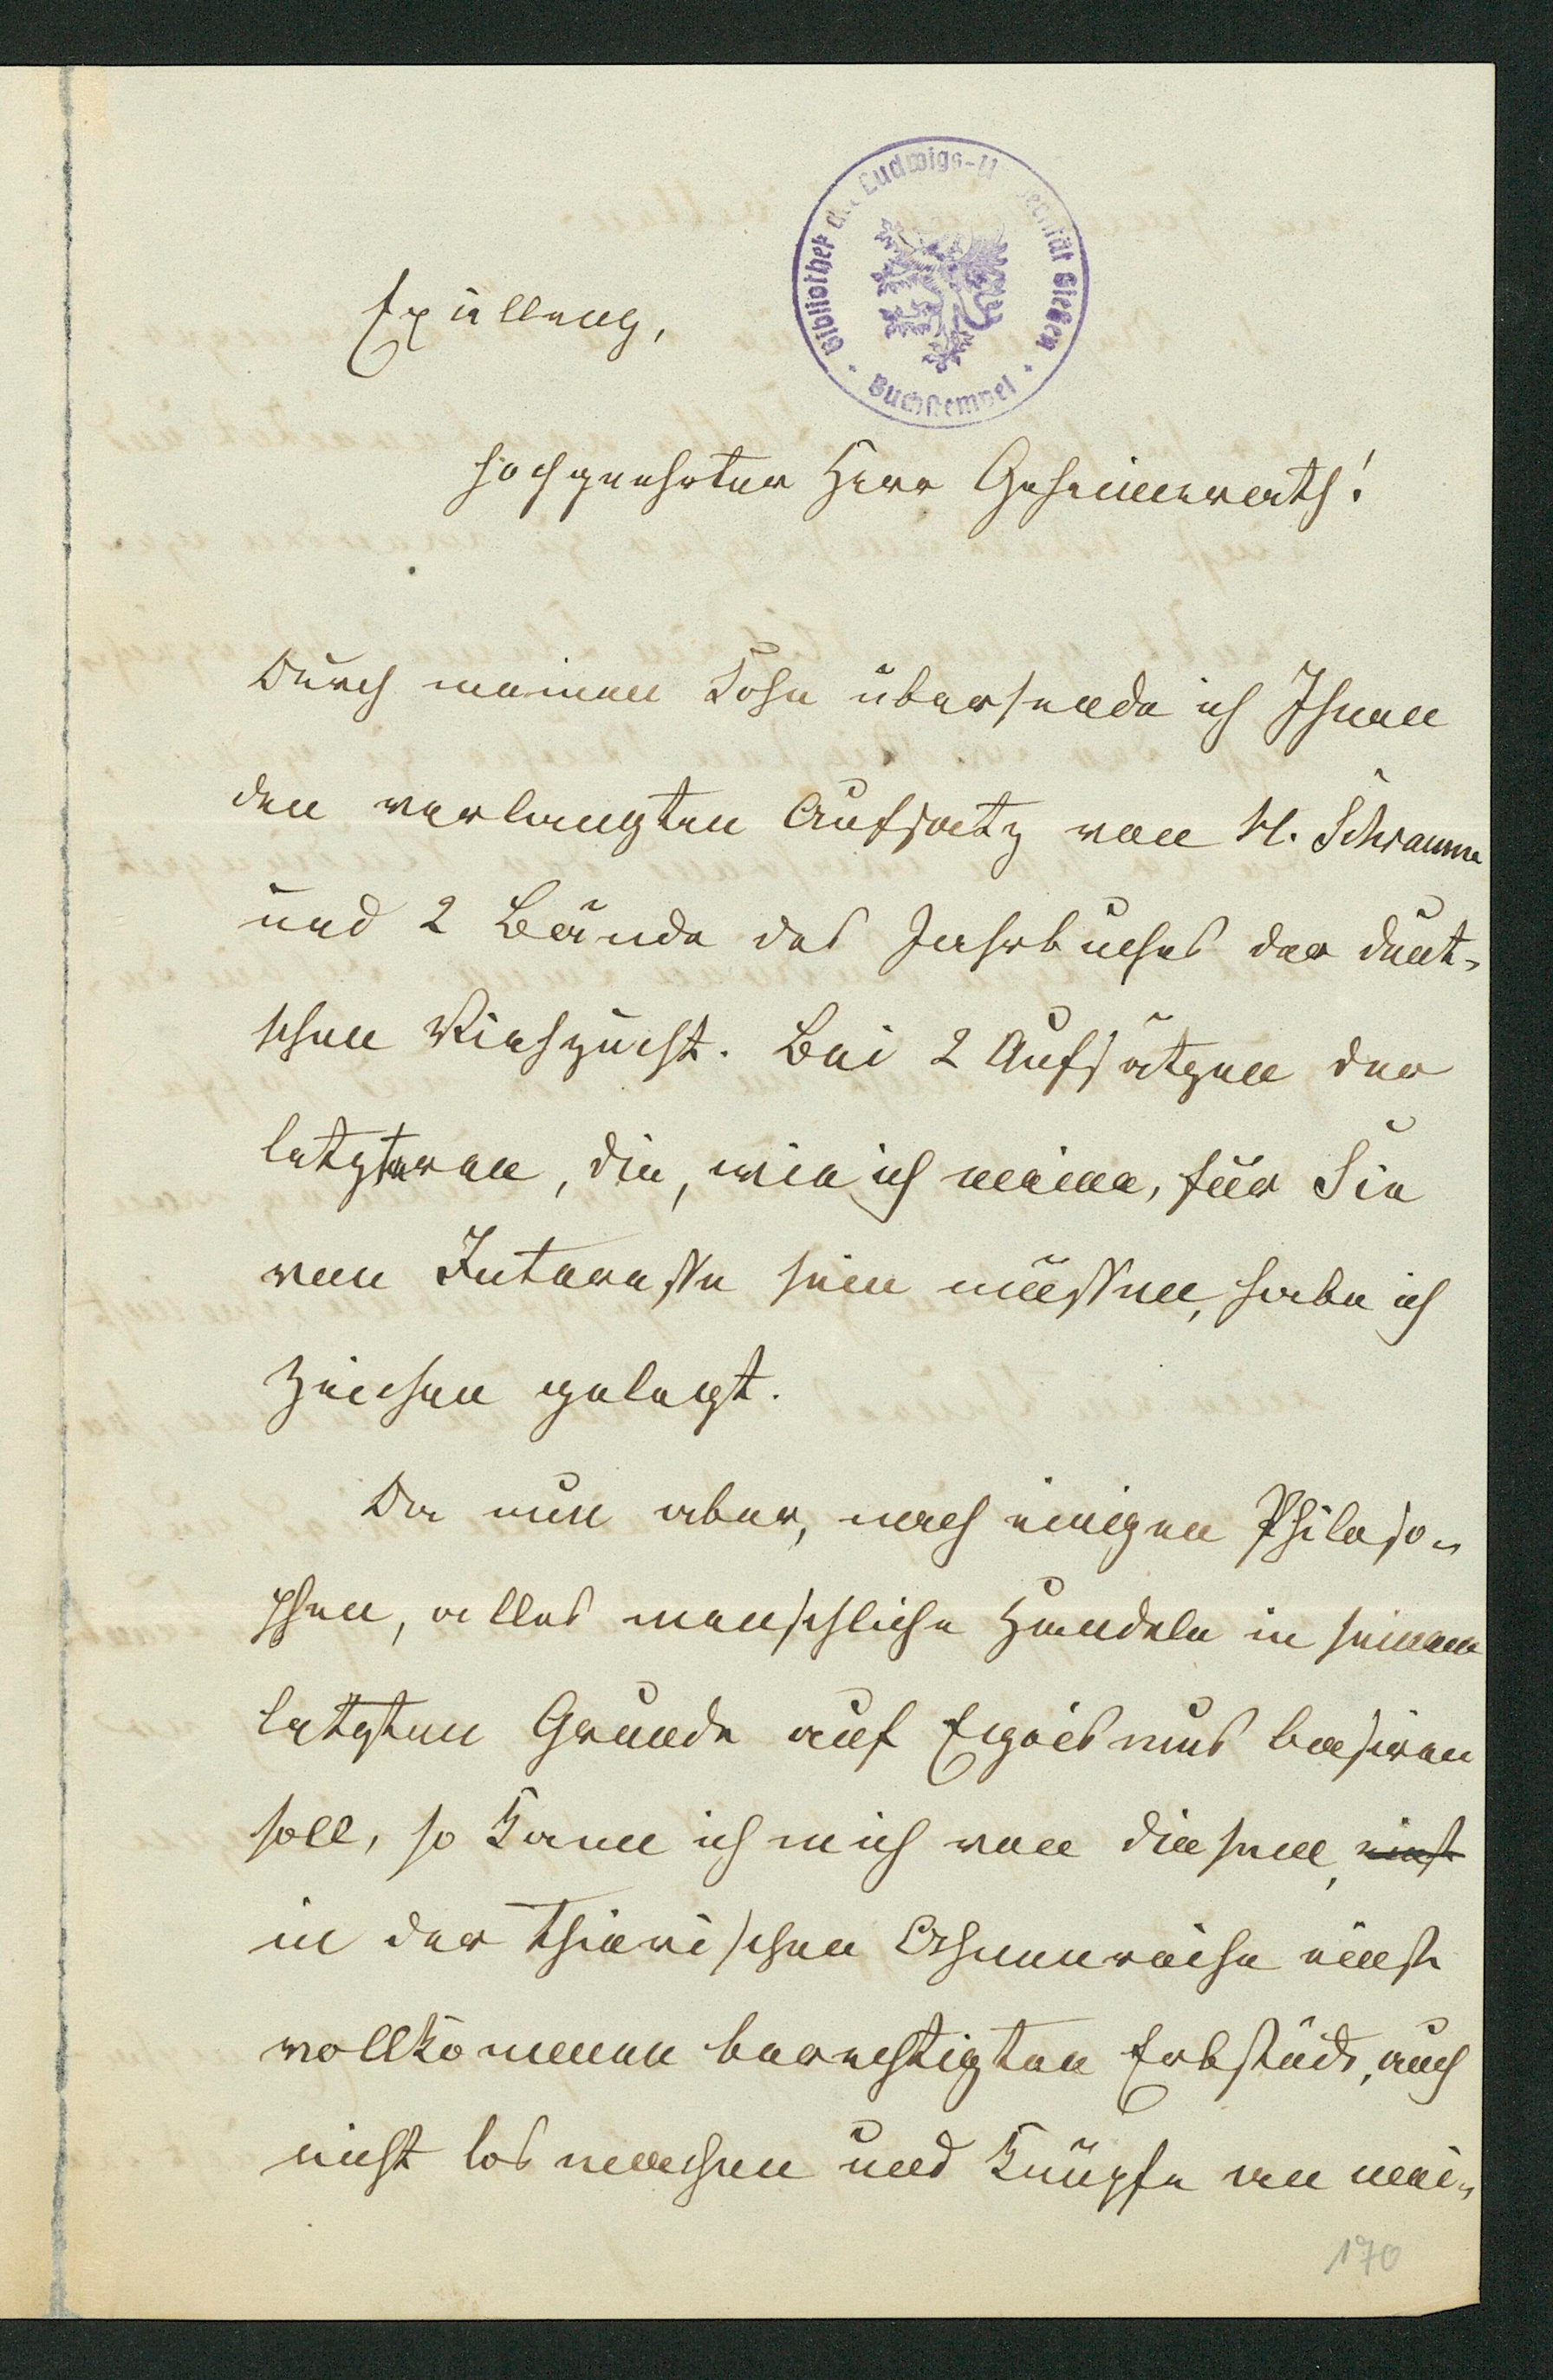 Bibliothek der Ludwigs-Universität Gießen
Buchstempel
Excellenz,
hochgeehrter Herr Geheimerath!
Durch meinen Sohn übersende ich Ihnen
den verlangten Aufsatz von H. Schramm
und 2 Bände des Jahrbuches der deut-
schen Viehzucht. Bei 2 Aufsätzen der
letzteren, die, wie ich meine, für Sie
von Interesse sein müssen, habe ich
Zeichen gelegt.
Da nun aber, nach einigen Philoso-
phen, alles menschliche Handeln in seinem
letzten Grunde auf Egoismus basiren
soll, so kann ich mich von diesem,
in der thierischen Ahnenreihe einst
vollkommen berechtigten Erbstück, auch
nicht los machen und knüpfe an mei-
170